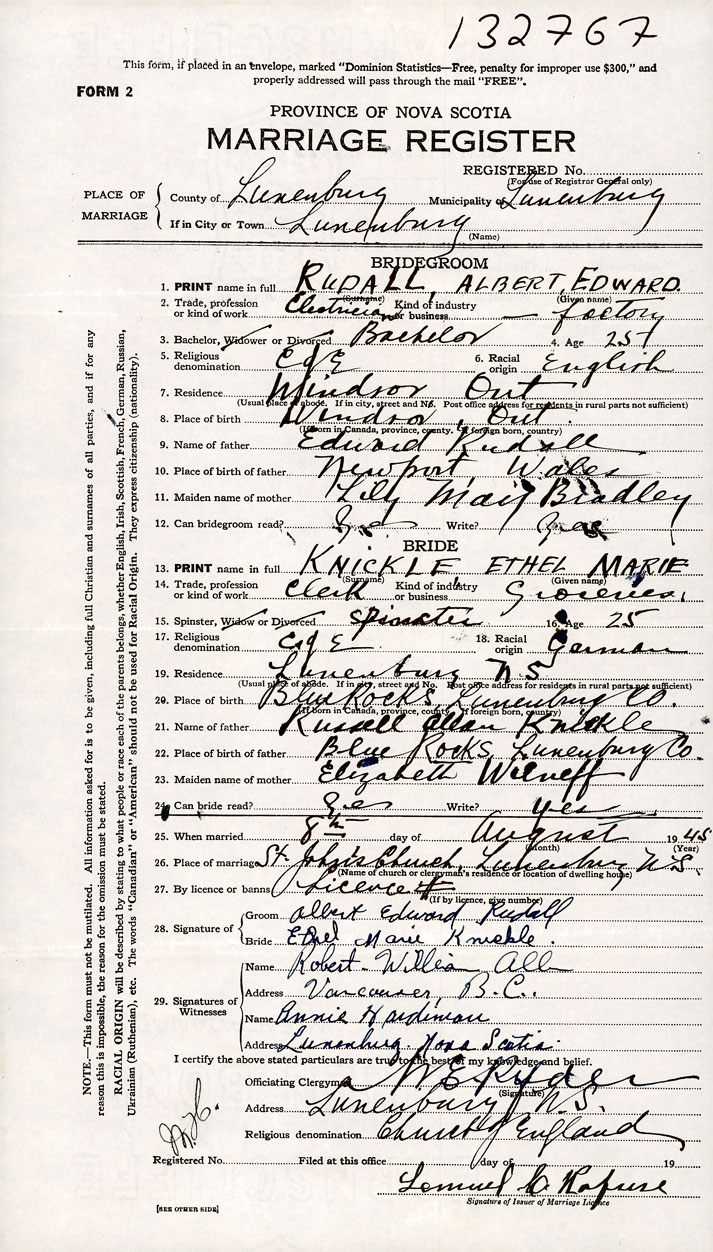 132767
This form, if placed in an envelope, marked "Dominion Statistics—Free, penalty for improper use $300," and
properly addressed will pass through the mail "FREE".
FORM 2
PROVINCE OF NOVA SCOTIA
MARRIAGE REGISTER
REGISTERED No.
(For use of Registrar General only)
PLACE OF MARRIAGE
County of Lunenburg Municipality of Lunenburg
If in City or Town Lunenburg
(Name)
BRIDEGROOM
1. PRINT name in full RUDALL, ALBERT, EDWARD.
(Surname) (Given name)
2. Trade, profession or kind of work Electrician Kind of industry or business factory
3. Bachelor, Widower or Divorced Bachelor 4. Age 25
5. Religious denomination C of E 6. Racial origin English
7. Residence Windsor Ont
(Usual place of abode. If in city, street and No. Post office address for residents in rural parts not sufficient)
8. Place of birth Windsor, Ont.
(If born in Canada, province, county. If foreign born, country)
9. Name of father Edward Rudall
10. Place of birth of father Newport Wales
11. Maiden name of mother Lily May Bradley
12. Can bridegroom read? Yes Write? Yes
BRIDE
13. PRINT name in full KNICKLE ETHEL MARIE
(Surname) (Given name)
14. Trade, profession or kind of work Clerk Kind of industry or business Groceries.
15. Spinster, Widow or Divorced Spinster 16. Age 25
17. Religious denomination C of E 18. Racial origin German
19. Residence Lunenburg N.S.
(Usual place of abode. If in city, street and No. Post office address for residents in rural parts not sufficient)
20. Place of birth Blue Rocks Lunenburg Co.
(If born in Canada, province, county. If foreign born, country)
21. Name of father Russell Allan Knickle
22. Place of birth of father Blue Rocks, Lunenburg Co.
23. Maiden name of mother Elizabeth
24. Can bride read? Yes Write? Yes
25. When married 8th day of August 1945
(Month) (Year)
26. Place of marriage St. John's Church, Lunenburg N.S.
(Name of church or clergyman's residence or location of dwelling house)
27. By licence or banns Licence
(If by licence, give number)
28. Signature of
Groom Albert Edward Rudall
Bride Ethel Marie Knickle.
29. Signatures of Witnesses
Name Robert William
Address Vancouver, B.C.
Name Annie Hardiman
Address Lunenburg. Nova Scotia.
I certify the above stated particulars are true to the best of my knowledge and belief.
Officiating Clergyman W E Ryder
(Signature)
Address Lunenburg N.S.
Religious denomination Church of England
Registered No. Filed at this office day of 19
Lemuel
Signature of Issuer of Marriage Licence
[SEE OTHER SIDE]
NOTE.—This form must not be mutilated. All information asked for is to be given, including full Christian and surnames of all parties, and if for any
reason this is impossible, the reason for the omission must be stated.
RACIAL ORIGIN will be described by stating to what people or race each of the parents belongs, whether English, Irish, Scottish, French, German, Russian,
Ukrainian (Ruthenian), etc. The words "Canadian" or "American" should not be used for Racial Origin. They express citizenship (nationality).